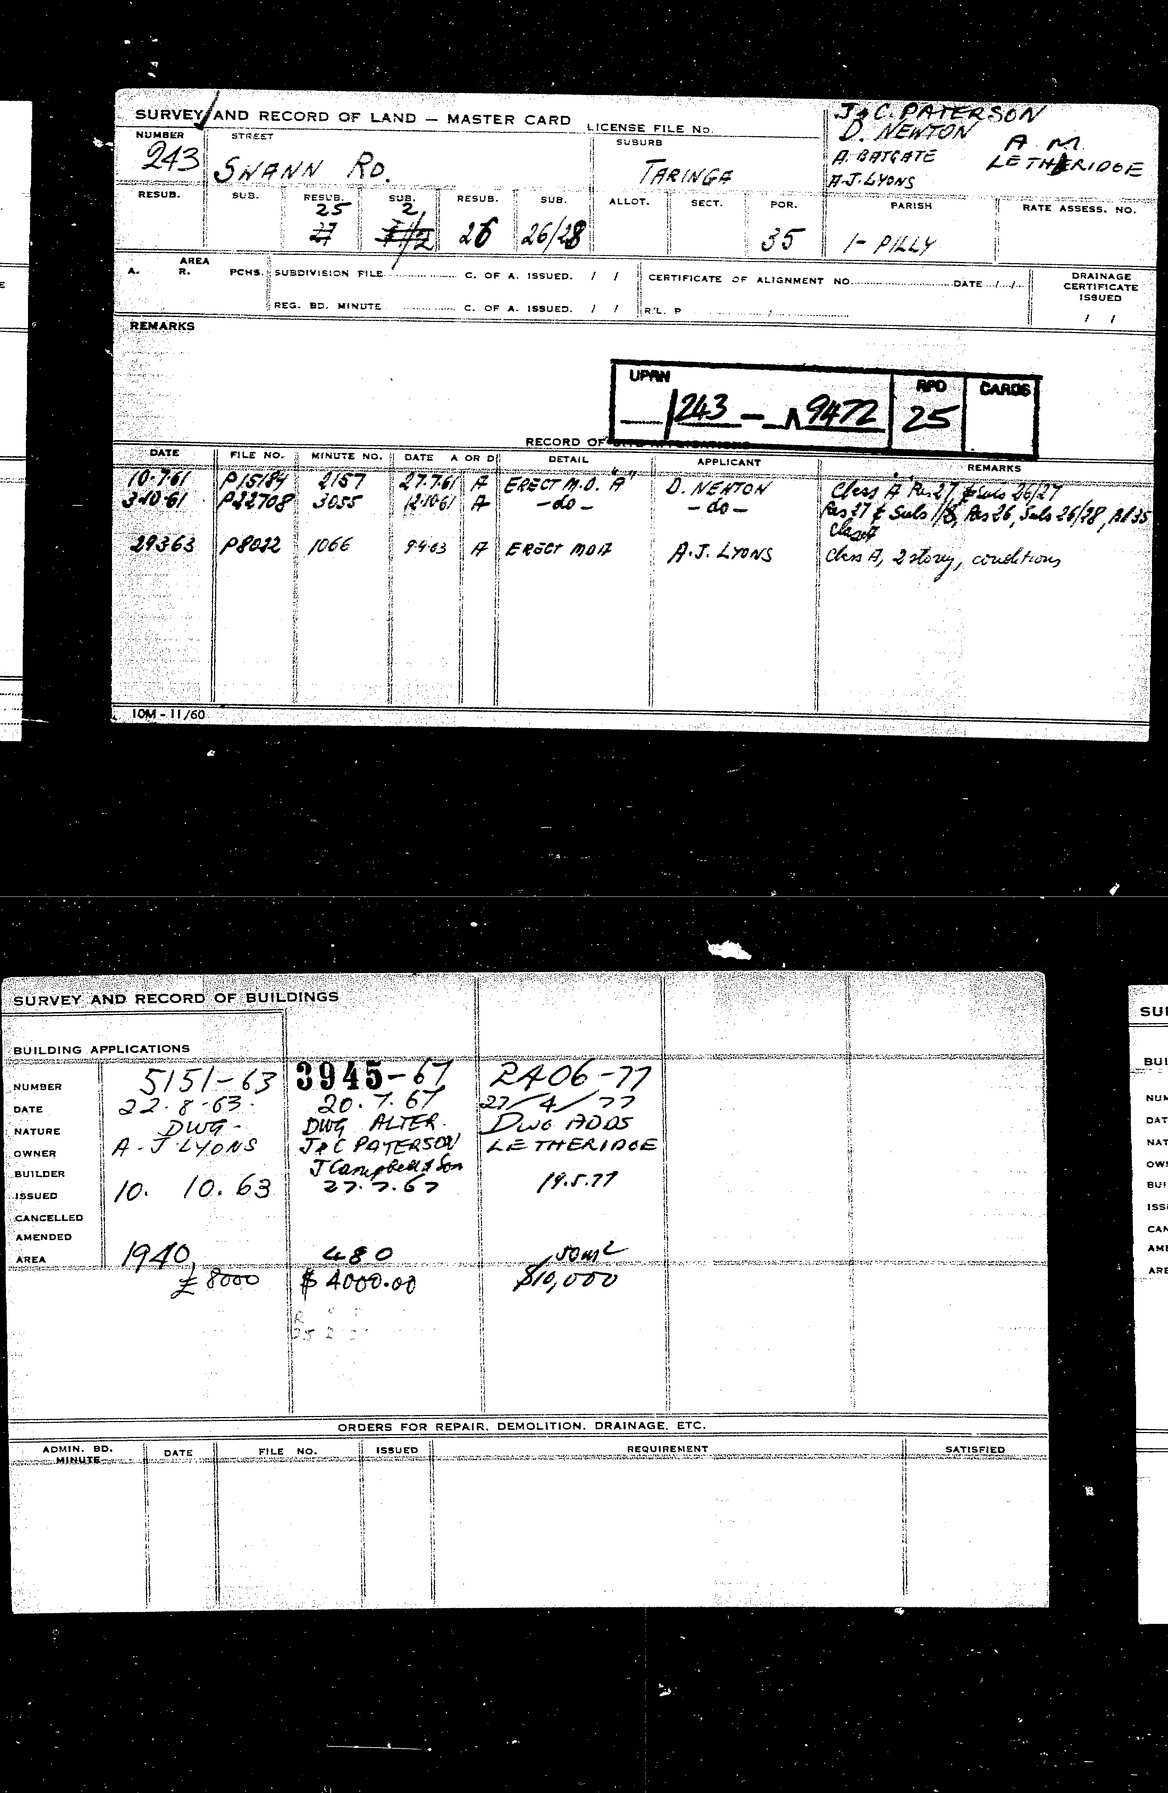 SURVEY AND RECORD OF LAND — MASTER CARD
LICENSE FILE No.
J & C. PATERSON
D. NEWTON
A. BATGATE
A.J. LYONS
A M.
LETHERIDGE
NUMBER STREET SUBURB
243 SWANN RD. TARINGA
RESUB. SUB. RESUB. SUB. RESUB. SUB. ALLOT. SECT. POR. PARISH RATE ASSESS. NO.
25 2
27 26 26/28 35 I-PILLY
AREA
A. R. PCHS. SUBDIVISION FILE C. OF A. ISSUED. / / CERTIFICATE OF ALIGNMENT NO. DATE / / DRAINAGE CERTIFICATE ISSUED
REG. BD. MINUTE C. OF A. ISSUED. / / R/L. P / / /
REMARKS
UPRN RPD CARDS
243 — 9472 25
RECORD OF SITE APPLICATIONS
DATE FILE NO. MINUTE NO. DATE A OR D DETAIL APPLICANT REMARKS
10.7.61 P15184 2157 27.7.61 A ERECT M.D. "A" D. NEWTON Class A Res 27, & Subs 26/27
3.10.61 P22708 3055 12.10.61 A —do— —do— Res 27 & Subs 1/8, Res 26, Subs 26/28, Al 35
Class A
29363 P8022 1066 9.4.63 A ERECT MDA A.J. LYONS Class A, 2 storey, conditions
10M - 11/60
SURVEY AND RECORD OF BUILDINGS
BUILDING APPLICATIONS
NUMBER 5151-63 3945-67 2406-77
DATE 22.8.63. 20.7.67 27/4/77
NATURE DWG. DWG ALTER. DWG ADDS
OWNER A.J LYONS J & C PATERSON LETHERIDGE
BUILDER J Campbell & Son
ISSUED 10. 10.63 27.7.67 19.5.77
CANCELLED
AMENDED
AREA 1940, 480 50m2
£ 8000 $ 4000.00 $10,000
ORDERS FOR REPAIR, DEMOLITION, DRAINAGE, ETC.
ADMIN. BD. MINUTE DATE FILE NO. ISSUED REQUIREMENT SATISFIED